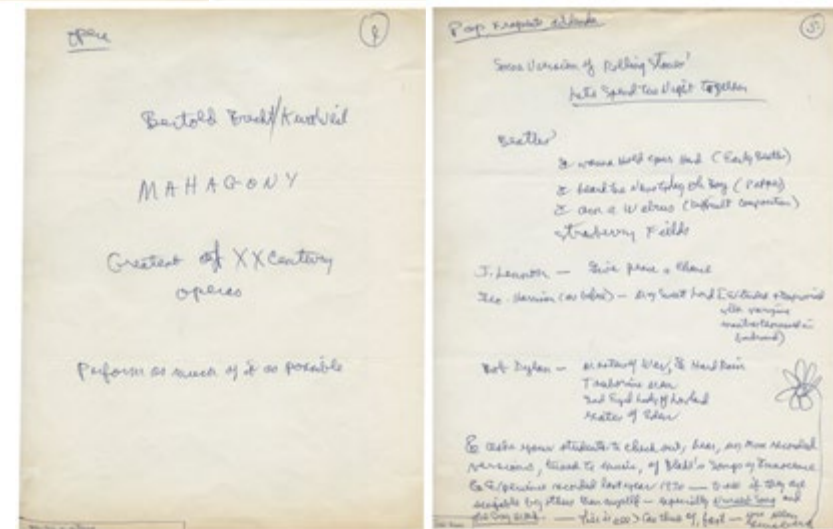 opera
Bertold Brecht/Kurt Weil
MAHAGONY
Greatest of XX Century
operas
Perform as much of it as possible
Pop
5
Some Version of Rolling Stones'
Let's Spend the Night Together
Beatles'
I wanna Hold your Hand (Early Beatles)
I heard the News today Oh Boy (
I am a Walrus (Difficult Composition)
Strawberry Fields
J. Lennon — Give peace a Chance
Harrison — My Sweet Lord
Bob Dylan — Masters of War, & Hard Rain
Tambourine man
Sad Eyed Lady of Lowland
Gates of Eden
& asks your students to check out, hear, on now recorded
versions, tuned to music, of Blake's Songs of Innocence
& Experience recorded last year 1970 — to see if they are
by other than myself — especially Nurses Song and